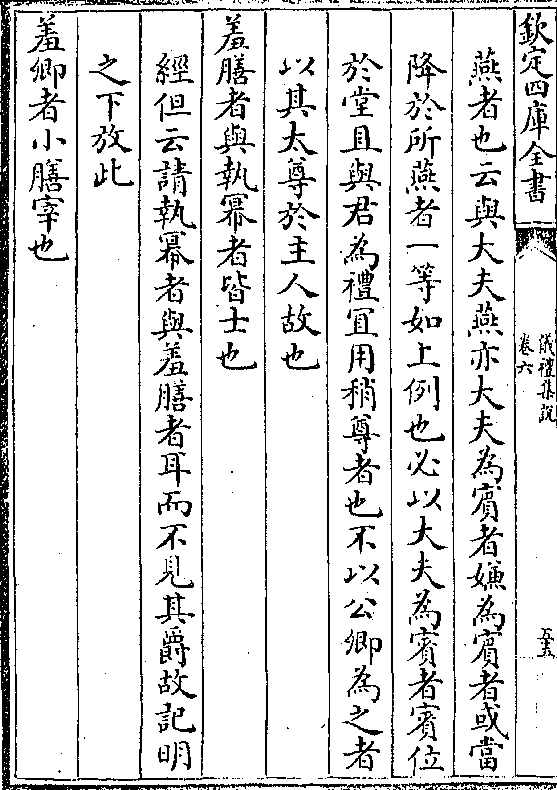 欽定四庫全書
儀禮集說
卷六
五五
燕者也云與大夫燕亦大夫為賓者嫌為賓者或當
降於所燕者一等如上例也必以大夫為賓者賓位
於堂且與君為禮宜用稍尊者也不以公卿為之者
以其太尊於主人故也
羞膳者與執冪者皆士也
經但云請執冪者與羞膳者耳而不見其爵故記明
之下放此
羞卿者小膳宰也